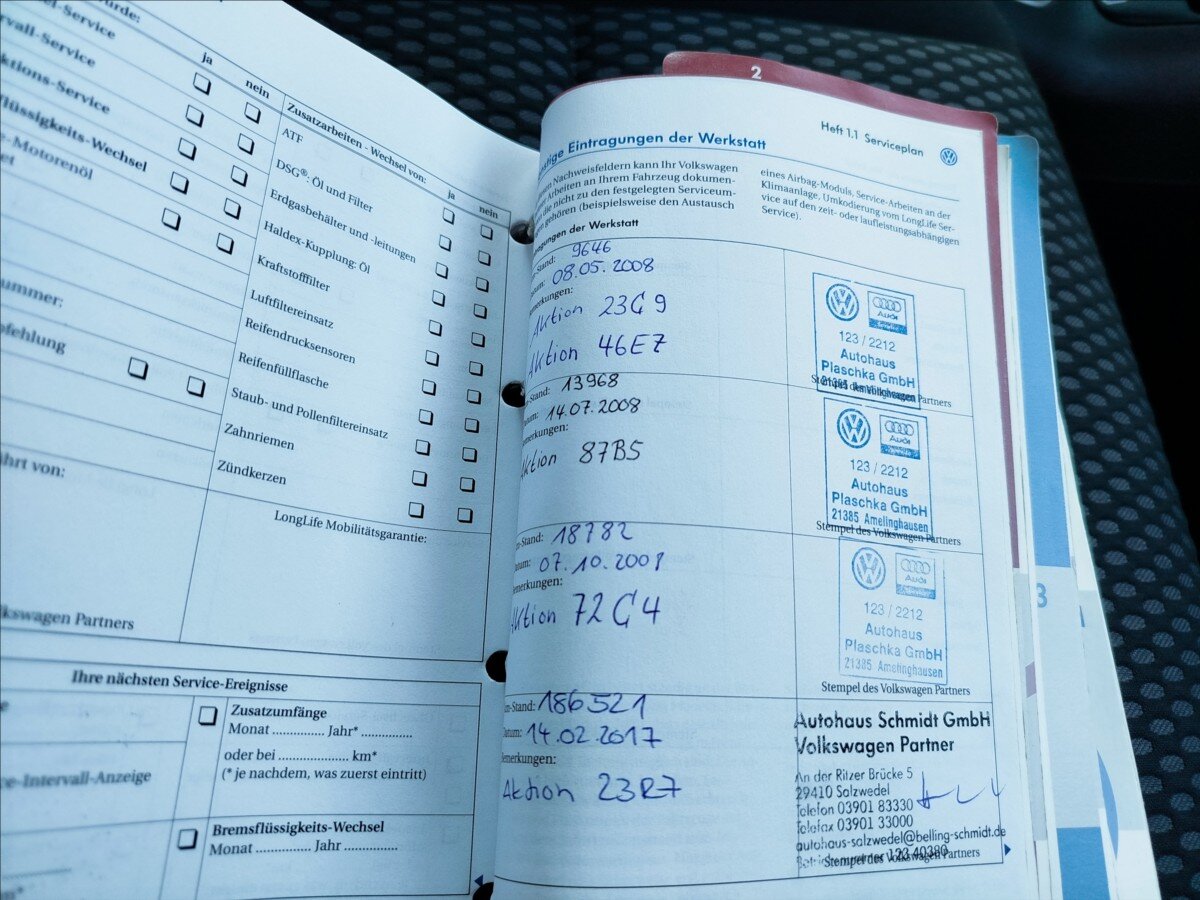 wurde:
ja nein
-Service
vall-Service
ktions-Service
flüssigkeits-Wechsel
-Motorenöl
nummer:
pfehlung
hrt von:
kswagen Partners
Zusatzarbeiten - Wechsel von:
ja nein
ATF
DSG®: Öl und Filter
Erdgasbehälter und -leitungen
Haldex-Kupplung: Öl
Kraftstofffilter
Luftfiltereinsatz
Reifendrucksensoren
Reifenfüllflasche
Staub- und Pollenfiltereinsatz
Zahnriemen
Zündkerzen
LongLife Mobilitätsgarantie:
Ihre nächsten Service-Ereignisse
ce-Intervall-Anzeige
Zusatzumfänge
Monat .............. Jahr* ..............
oder bei ................... km*
(* je nachdem, was zuerst eintritt)
Bremsflüssigkeits-Wechsel
Monat .............. Jahr ..............
2
Heft 1.1 Serviceplan
stige Eintragungen der Werkstatt
esen Nachweisfeldern kann Ihr Volkswagen
Arbeiten an Ihrem Fahrzeug dokumen-
die nicht zu den festgelegten Serviceum-
gehören (beispielsweise den Austausch
eines Airbag-Moduls, Service-Arbeiten an der
Klimaanlage, Umkodierung vom LongLife Ser-
vice auf den zeit- oder laufleistungsabhängigen
Service).
ragungen der Werkstatt
-Stand: 9646
tum: 08.05.2008
emerkungen:
Aktion 23G9
Aktion 46E7
Audi
Service
123 / 2212
Autohaus
Plaschka GmbH
21385 Amelinghausen
Stempel des Volkswagen Partners
-Stand: 13968
tum: 14.07.2008
emerkungen:
Aktion 87B5
Audi
Service
123 / 2212
Autohaus
Plaschka GmbH
21385 Amelinghausen
Stempel des Volkswagen Partners
m-Stand: 18782
atum: 07.10.2008
emerkungen:
Aktion 72G4
Audi
Service
123 / 2212
Autohaus
Plaschka GmbH
21385 Amelinghausen
Stempel des Volkswagen Partners
m-Stand: 186521
Datum: 14.02.2017
Bemerkungen:
Aktion 23R7
Autohaus Schmidt GmbH
Volkswagen Partner
An der Ritzer Brücke 5
29410 Salzwedel
Telefon 03901 83330
Telefax 03901 33000
autohaus-salzwedel@belling-schmidt.de
Betriebsnummer 123 40380
Stempel des Volkswagen Partners
3